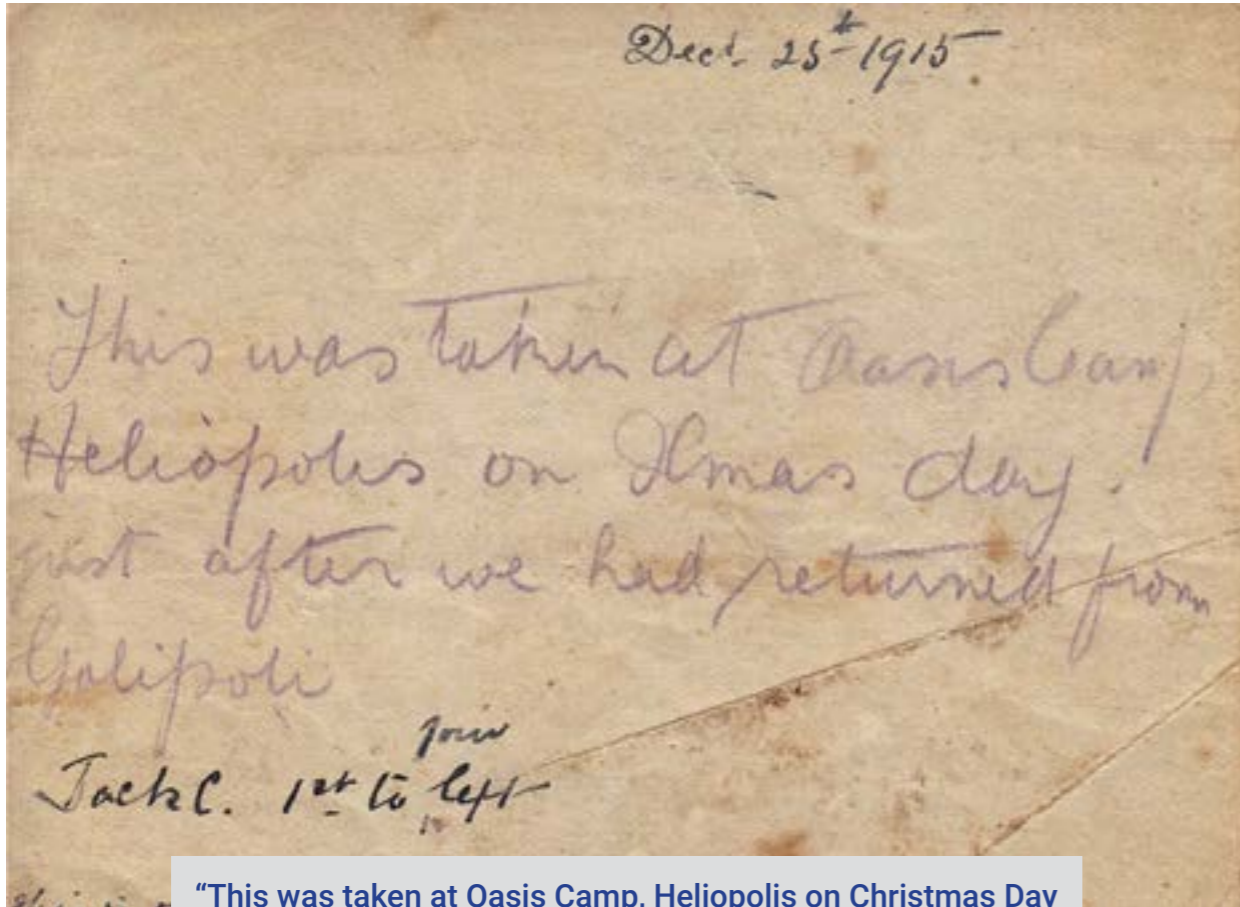 Dec. 25th 1915.
This was taken at Oasis Camp
Heliopolis on Xmas day.
just after we had returned from
Galipoli
your
Jack C. 1st to left
This is
“This was taken at Oasis Camp, Heliopolis on Christmas Day